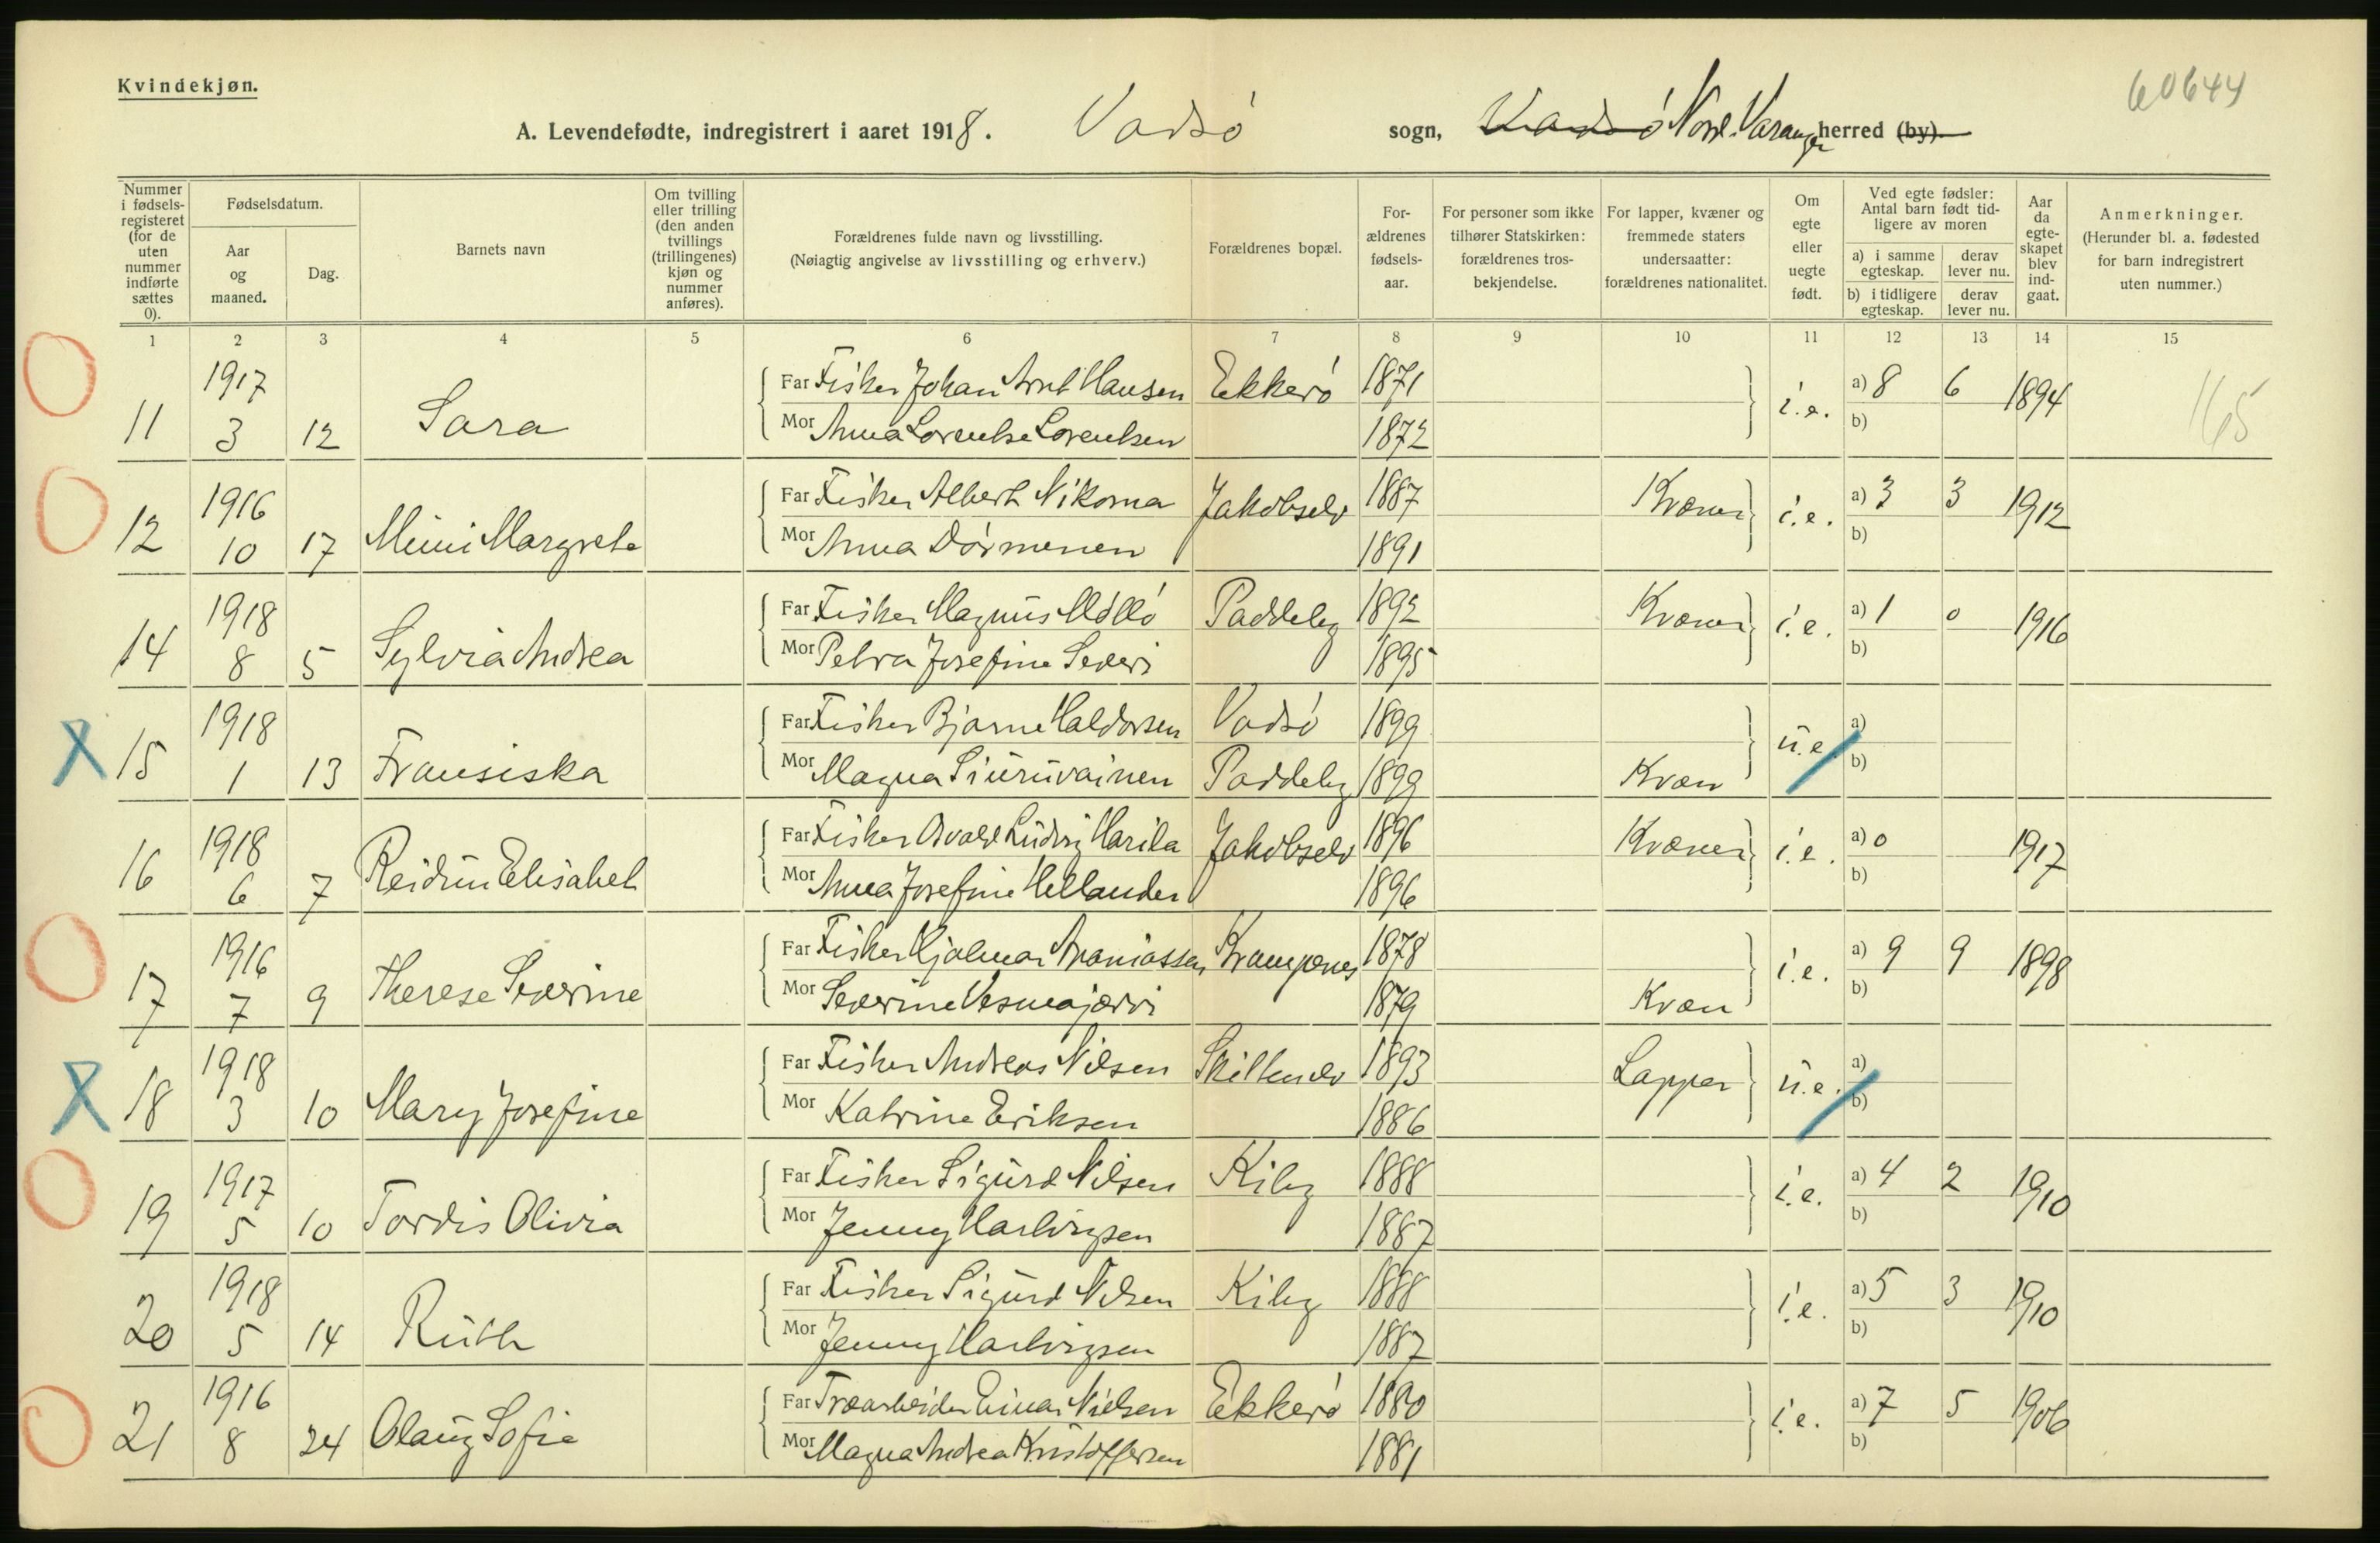 Kvindekjøn.
60644
A. Levendefødte, indregistrert i aaret 1918. Vadsö sogn, Vadsö Nord-Varanger herred (by).
Nummer i fødsels-registeret (for de uten nummer indførte sættes 0).
Fødselsdatum.
Aar og maaned.
Dag.
Barnets navn
Om tvilling eller trilling (den anden tvillings (trillingenes) kjøn og nummer anføres).
Forældrenes fulde navn og livsstilling.
(Nøiagtig angivelse av livsstilling og erhverv.)
Forældrenes bopæl.
For-ældrenes fødsels-aar.
For personer som ikke tilhører Statskirken: forældrenes tros-bekjendelse.
For lapper, kvæner og fremmede staters undersaatter: forældrenes nationalitet.
Om egte eller uegte født.
Ved egte fødsler: Antal barn født tid-ligere av moren
a) i samme egteskap.
derav lever nu.
b) i tidligere egteskap.
derav lever nu.
Aar da egte-skapet blev ind-gaat.
Anmerkninger.
(Herunder bl. a. fødested for barn indregistrert uten nummer.)
1 2 3 4 5 6 7 8 9 10 11 12 13 14 15
1917 Far Fisker Johan Arnt Hansen Ekkerö 1871 i.e. a) 8 6 1894 165
11 3 12 Sara Mor Anna Lorentse Lorentsen 1872 b)
1916 Far Fisker Albert Nikoma Jakobselv 1887 Kvæner i.e. a) 3 3 1912
12 10 17 Mimi Margrete Mor Anna Dörmenen 1891 b)
1918 Far Fisker Magnus Mölló Paddeby 1892 Kvæner i.e. a) 1 0 1916
14 8 5 Sylvia Andrea Mor Petra Josefine Severi 1895 b)
1918 Far Fisker Bjarne Haldorsen Vadsö 1899 u.e. a)
X 15 1 13 Fransiska Mor Magna Siuruvainen Paddeby 1899 Kvæn b)
1918 Far Fisker Osvald Ludvig Harila Jakobselv 1896 Kvæner i.e. a) 0 1917
16 6 7 Reidun Elisabet Mor Anna Josefine Hellander 1896 b)
1916 Far Fisker Hjalmar Ananiassen Krampenes 1878 i.e. a) 9 9 1898
17 7 9 Therese Severine Mor Severine Vesmajærvi 1879 Kvæn b)
1918 Far Fisker Andreas Nilsen Skittenelv 1893 Lapper u.e. a)
X 18 3 10 Mary Josefine Mor Katrine Eriksen 1886 b)
1917 Far Fisker Sigurd Nilsen Kiby 1888 i.e. a) 4 2 1910
19 5 10 Tordis Olivia Mor Jenny Hartvigsen 1887 b)
1918 Far Fisker Sigurd Nilsen Kiby 1888 i.e. a) 5 3 1910
20 5 14 Ruth Mor Jenny Hartvigsen 1887 b)
1916 Far Træarbeider Einar Nielsen Ekkerö 1880 i.e. a) 7 5 1906
21 8 24 Olaug Sofie Mor Magna Andrea Kristoffersen 1881 b)